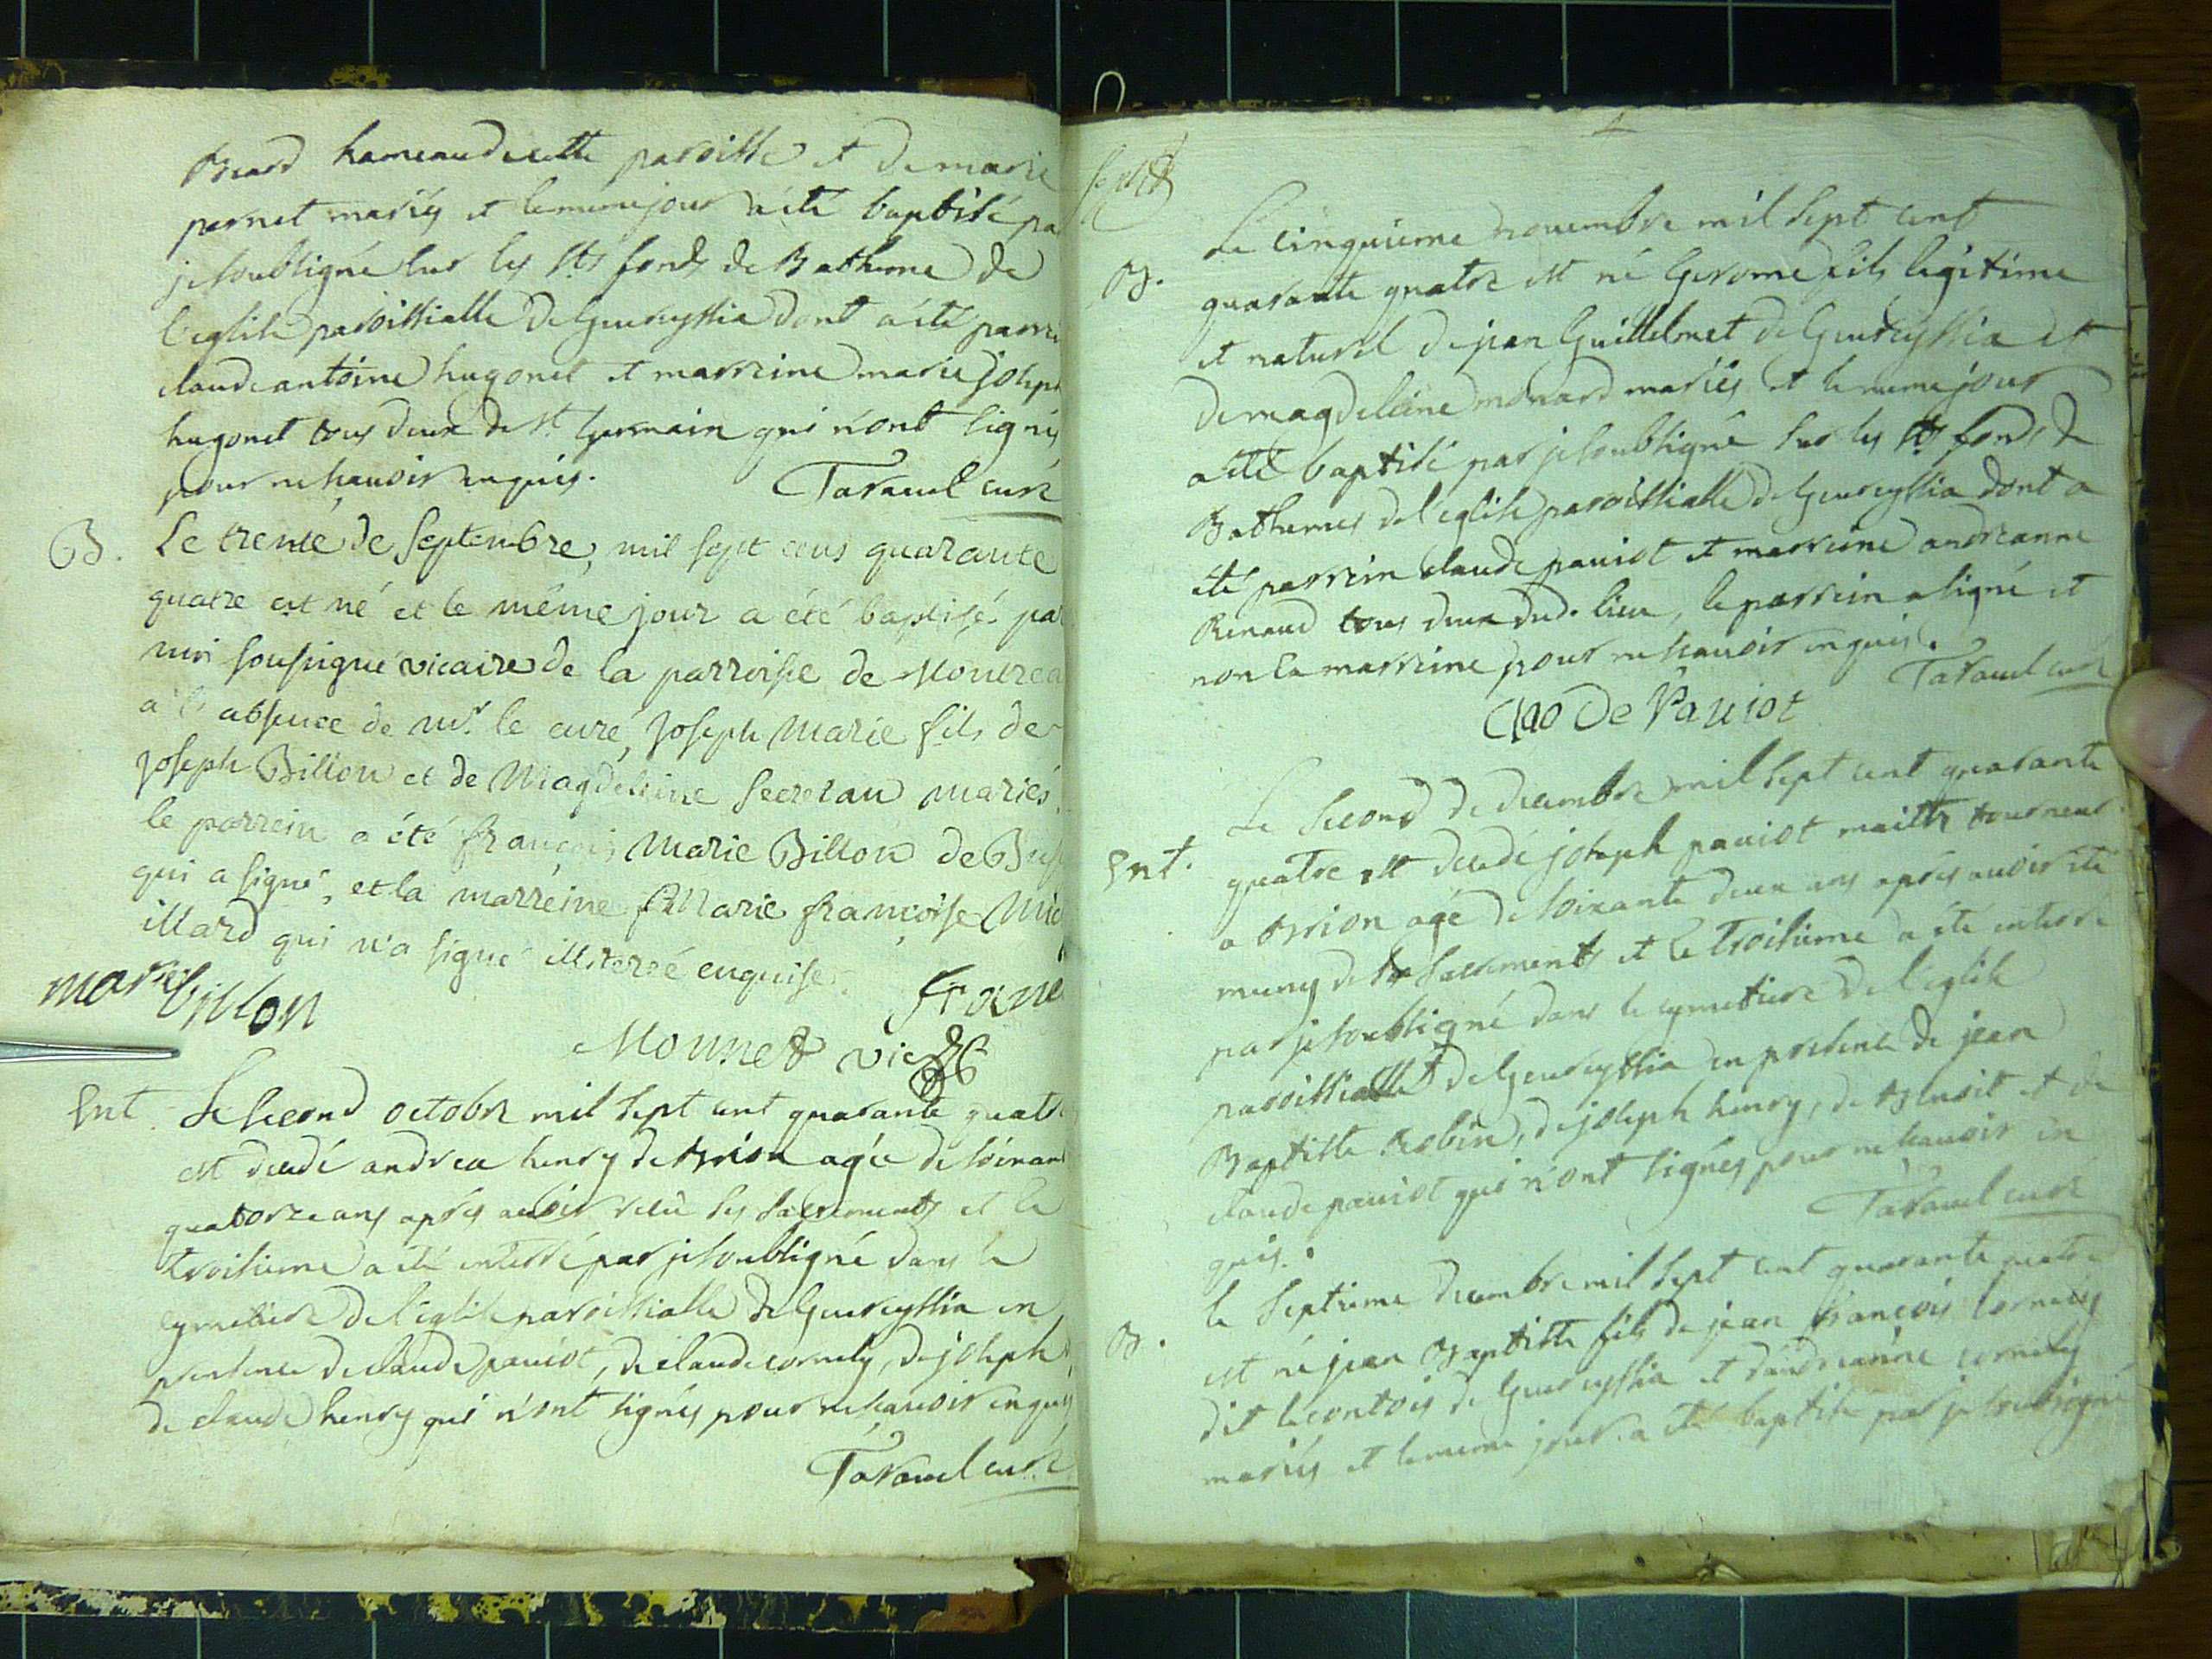 hameau de cette paroisse et de marie
pernet mariés et le meme jour a été baptisé pa
je soubsigné sur les sts fonds de Batheme de
l'eglise paroissialle de Geureyssia dont a été parre
claude antoine hugonet et marreine marie joseph
hugonet tous deux de st. Germain qui n'ont signés
pour ne scavoir enquis. Taravel curé
B. Le trente de septembre, mil sept cens quarante
quatre est né et le même jour a été baptisé par
moi soussigné vicaire de la parroisse de Montrea
a l'absence de mr. le curé, Joseph Marie fils de
Joseph Billon et de Magdeleine Secretan mariés.
le parrein a été françois Marie Billon de Bus
qui a signé, et la marreine Marie françoise Mic
illard qui n'a signé illiterée enquise.
franc
marie billon
Mounet vic
Ent. Le second octobre mil sept cent quarante quatre
est decedé andrea henry de Brion agée de soixant
quatorze ans apres avoir reçu ses sacrements et le
troisieme a été enterré par je soubsigné dans le
cymetiere de l'eglise paroissialle de Geureyssia en
presence de claude paviot, de claude cornely, de joseph
de claude henry qui n'ont signés pour ne scavoir enquis
Taravel curé
Le cinquieme novembre mil sept cent
B. quarante quatre est né Gerome fils legitime
et naturel de jean Guillelmet de Geureyssia et
de magdeleine monard mariés et le meme jour
a été baptisé par je soubsigné sur les sts fonds de
Bathemes de l'eglise paroissialle de Geureyssia dont a
été parrein claude paviot et marreine andreanne
Renaud tous deux dud. lieu, le parrein a signé et
non la marreine pour ne scavoir enquise.
Taravel curé
Clao De Paviot
Le second de decembre mil sept cent quarante
Ent. quatre est decedé joseph paviot maitre tourneur
a Brion agé de soixante deux ans apres avoir été
muny de ses sacrements et le troisieme a été enterré
par je soubsigné dans le cymetiere de l'eglise
paroissialle de Geureyssia en presence de jean
Baptiste Robin, de joseph henry, de Benoit et de
claude paviot qui n'ont signés pour ne scavoir en
quis. Taravel curé
le septieme decembre mil sept cent quarante quatre
B. est né jean Baptiste fils de jean françois cornely
dit lecontois de Geureyssia et d'andreanne cornely
mariés et le meme jour a été baptisé par je soubsigné